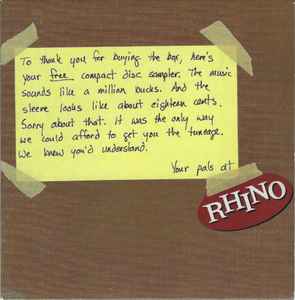 To thank you for buying the box, here's
your free compact disc sampler. The music
sounds like a million bucks. And the
sleeve looks like about eighteen cents.
Sorry about that. It was the only way
we could afford to get you the tuneage.
We knew you'd understand.
Your pals at
RHINO